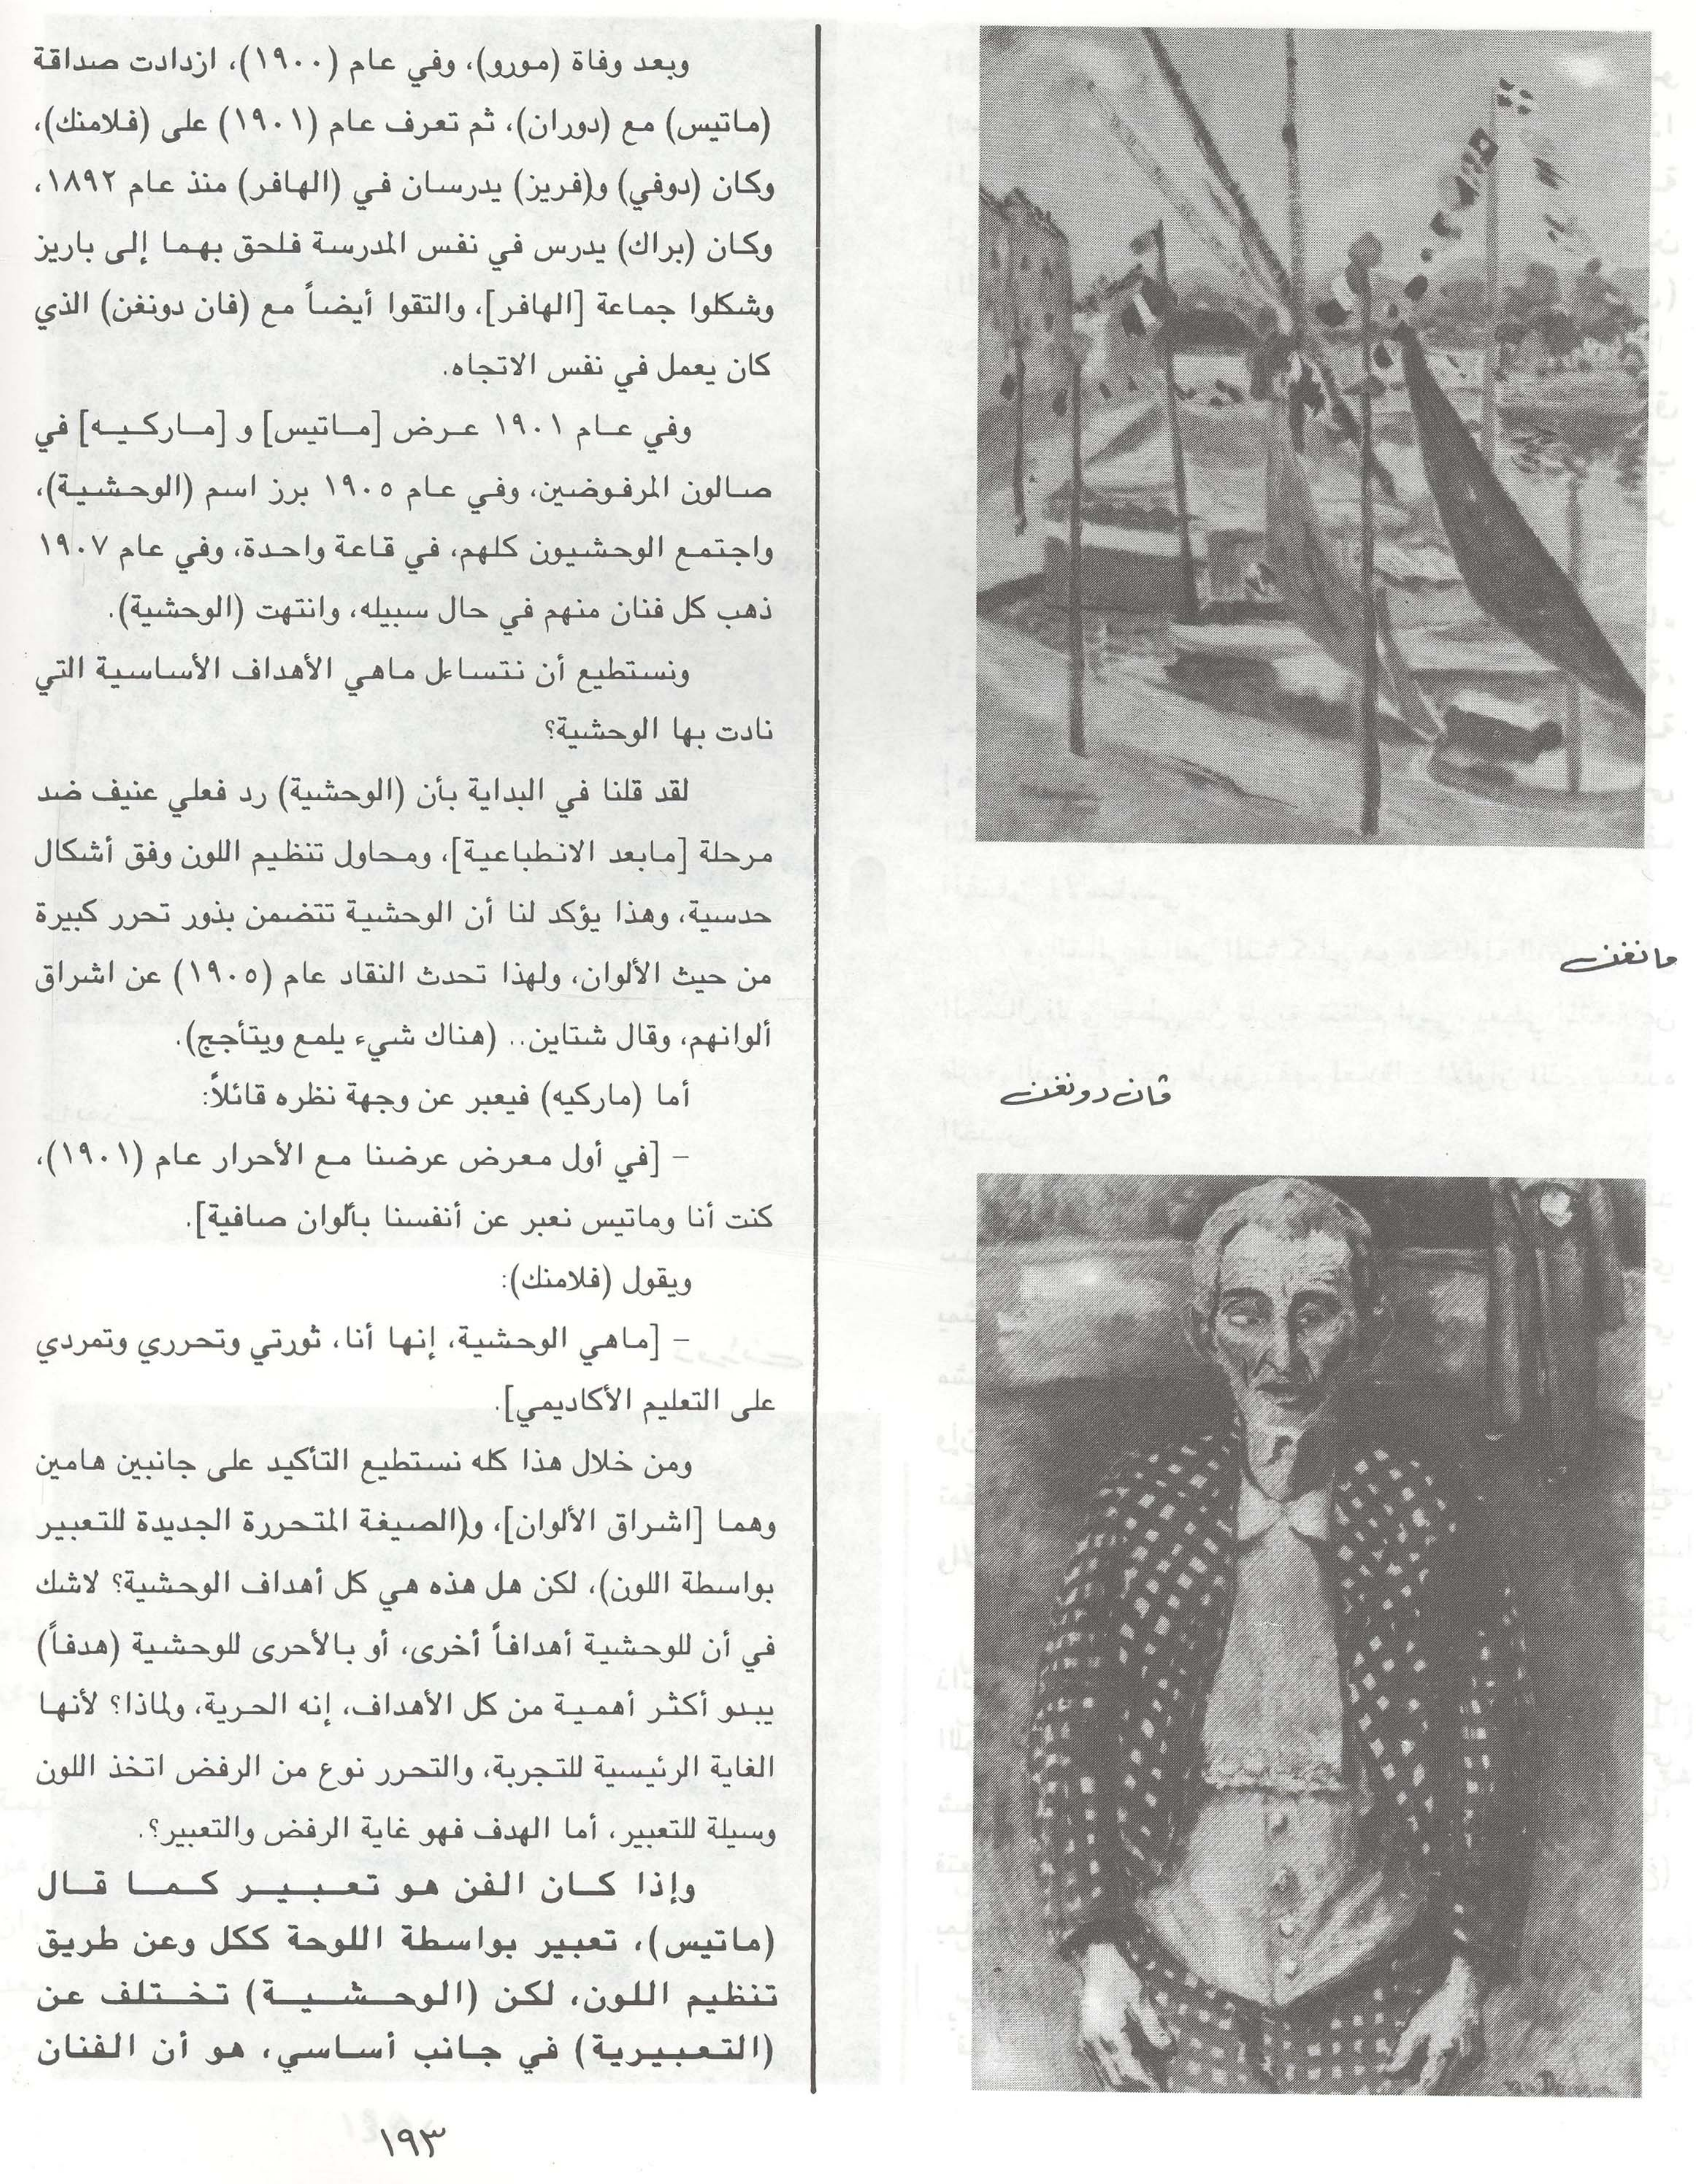 وبعد وفاة (مورو)، وفي عام (١٩٠٠)، ازدادت صداقة
(ماتيس) مع (دوران)، ثم تعرف عام (١٩٠١) على (فلامنك)،
وكان (دوفي) و(فريز) يدرسان في (الهافر) منذ عام ١٨٩٢،
وكان (براك) يدرس في نفس المدرسة فلحق بهما إلى باريز
وشكلوا جماعة [الهافر]، والتقوا أيضاً مع (فان دونغن) الذي
كان يعمل في نفس الاتجاه.
وفي عام ١٩٠١ عرض [ماتيس] و [ماركيه] في
صالون المرفوضين، وفي عام ١٩٠٥ برز اسم (الوحشية)،
واجتمع الوحشيون كلهم، في قاعة واحدة، وفي عام ١٩٠٧
ذهب كل فنان منهم في حال سبيله، وانتهت (الوحشية).
ونستطيع أن نتساءل ماهي الأهداف الأساسية التي
نادت بها الوحشية؟
لقد قلنا في البداية بأن (الوحشية) رد فعلي عنيف ضد
مرحلة [مابعد الانطباعية]، ومحاول تنظيم اللون وفق أشكال
حدسية، وهذا يؤكد لنا أن الوحشية تتضمن بذور تحرر كبيرة
من حيث الألوان، ولهذا تحدث النقاد عام (١٩٠٥) عن اشراق
ألوانهم، وقال شتاين.. (هناك شيء يلمع ويتأجج).
أما (ماركيه) فيعبر عن وجهة نظره قائلاً:
– [في أول معرض عرضنا مع الأحرار عام (١٩٠١)،
كنت أنا وماتيس نعبر عن أنفسنا بألوان صافية].
ويقول (فلامنك):
– [ماهي الوحشية، إنها أنا، ثورتي وتحرري وتمردي
على التعليم الأكاديمي].
ومن خلال هذا كله نستطيع التأكيد على جانبين هامين
وهما [اشراق الألوان]، و(الصيغة المتحررة الجديدة للتعبير
بواسطة اللون)، لكن هل هذه هي كل أهداف الوحشية؟ لاشك
في أن للوحشية أهدافاً أخرى، أو بالأحرى للوحشية (هدفاً)
يبدو أكثر أهمية من كل الأهداف، إنه الحرية، ولماذا؟ لأنها
الغاية الرئيسية للتجربة، والتحرر نوع من الرفض اتخذ اللون
وسيلة للتعبير، أما الهدف فهو غاية الرفض والتعبير؟.
وإذا كان الفن هو تعبير كما قال
(ماتيس)، تعبير بواسطة اللوحة ككل وعن طريق
تنظيم اللون، لكن (الوحشية) تختلف عن
(التعبيرية) في جانب أساسي، هو أن الفنان
مانغن
فان دونغن
١٩٣